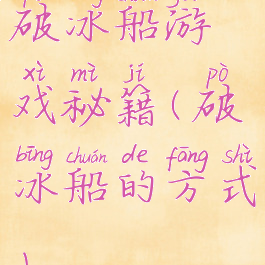 破冰船游
xì mì jí pò
戏秘籍(破
bīng chuán de fāng shì
冰船的方式
)